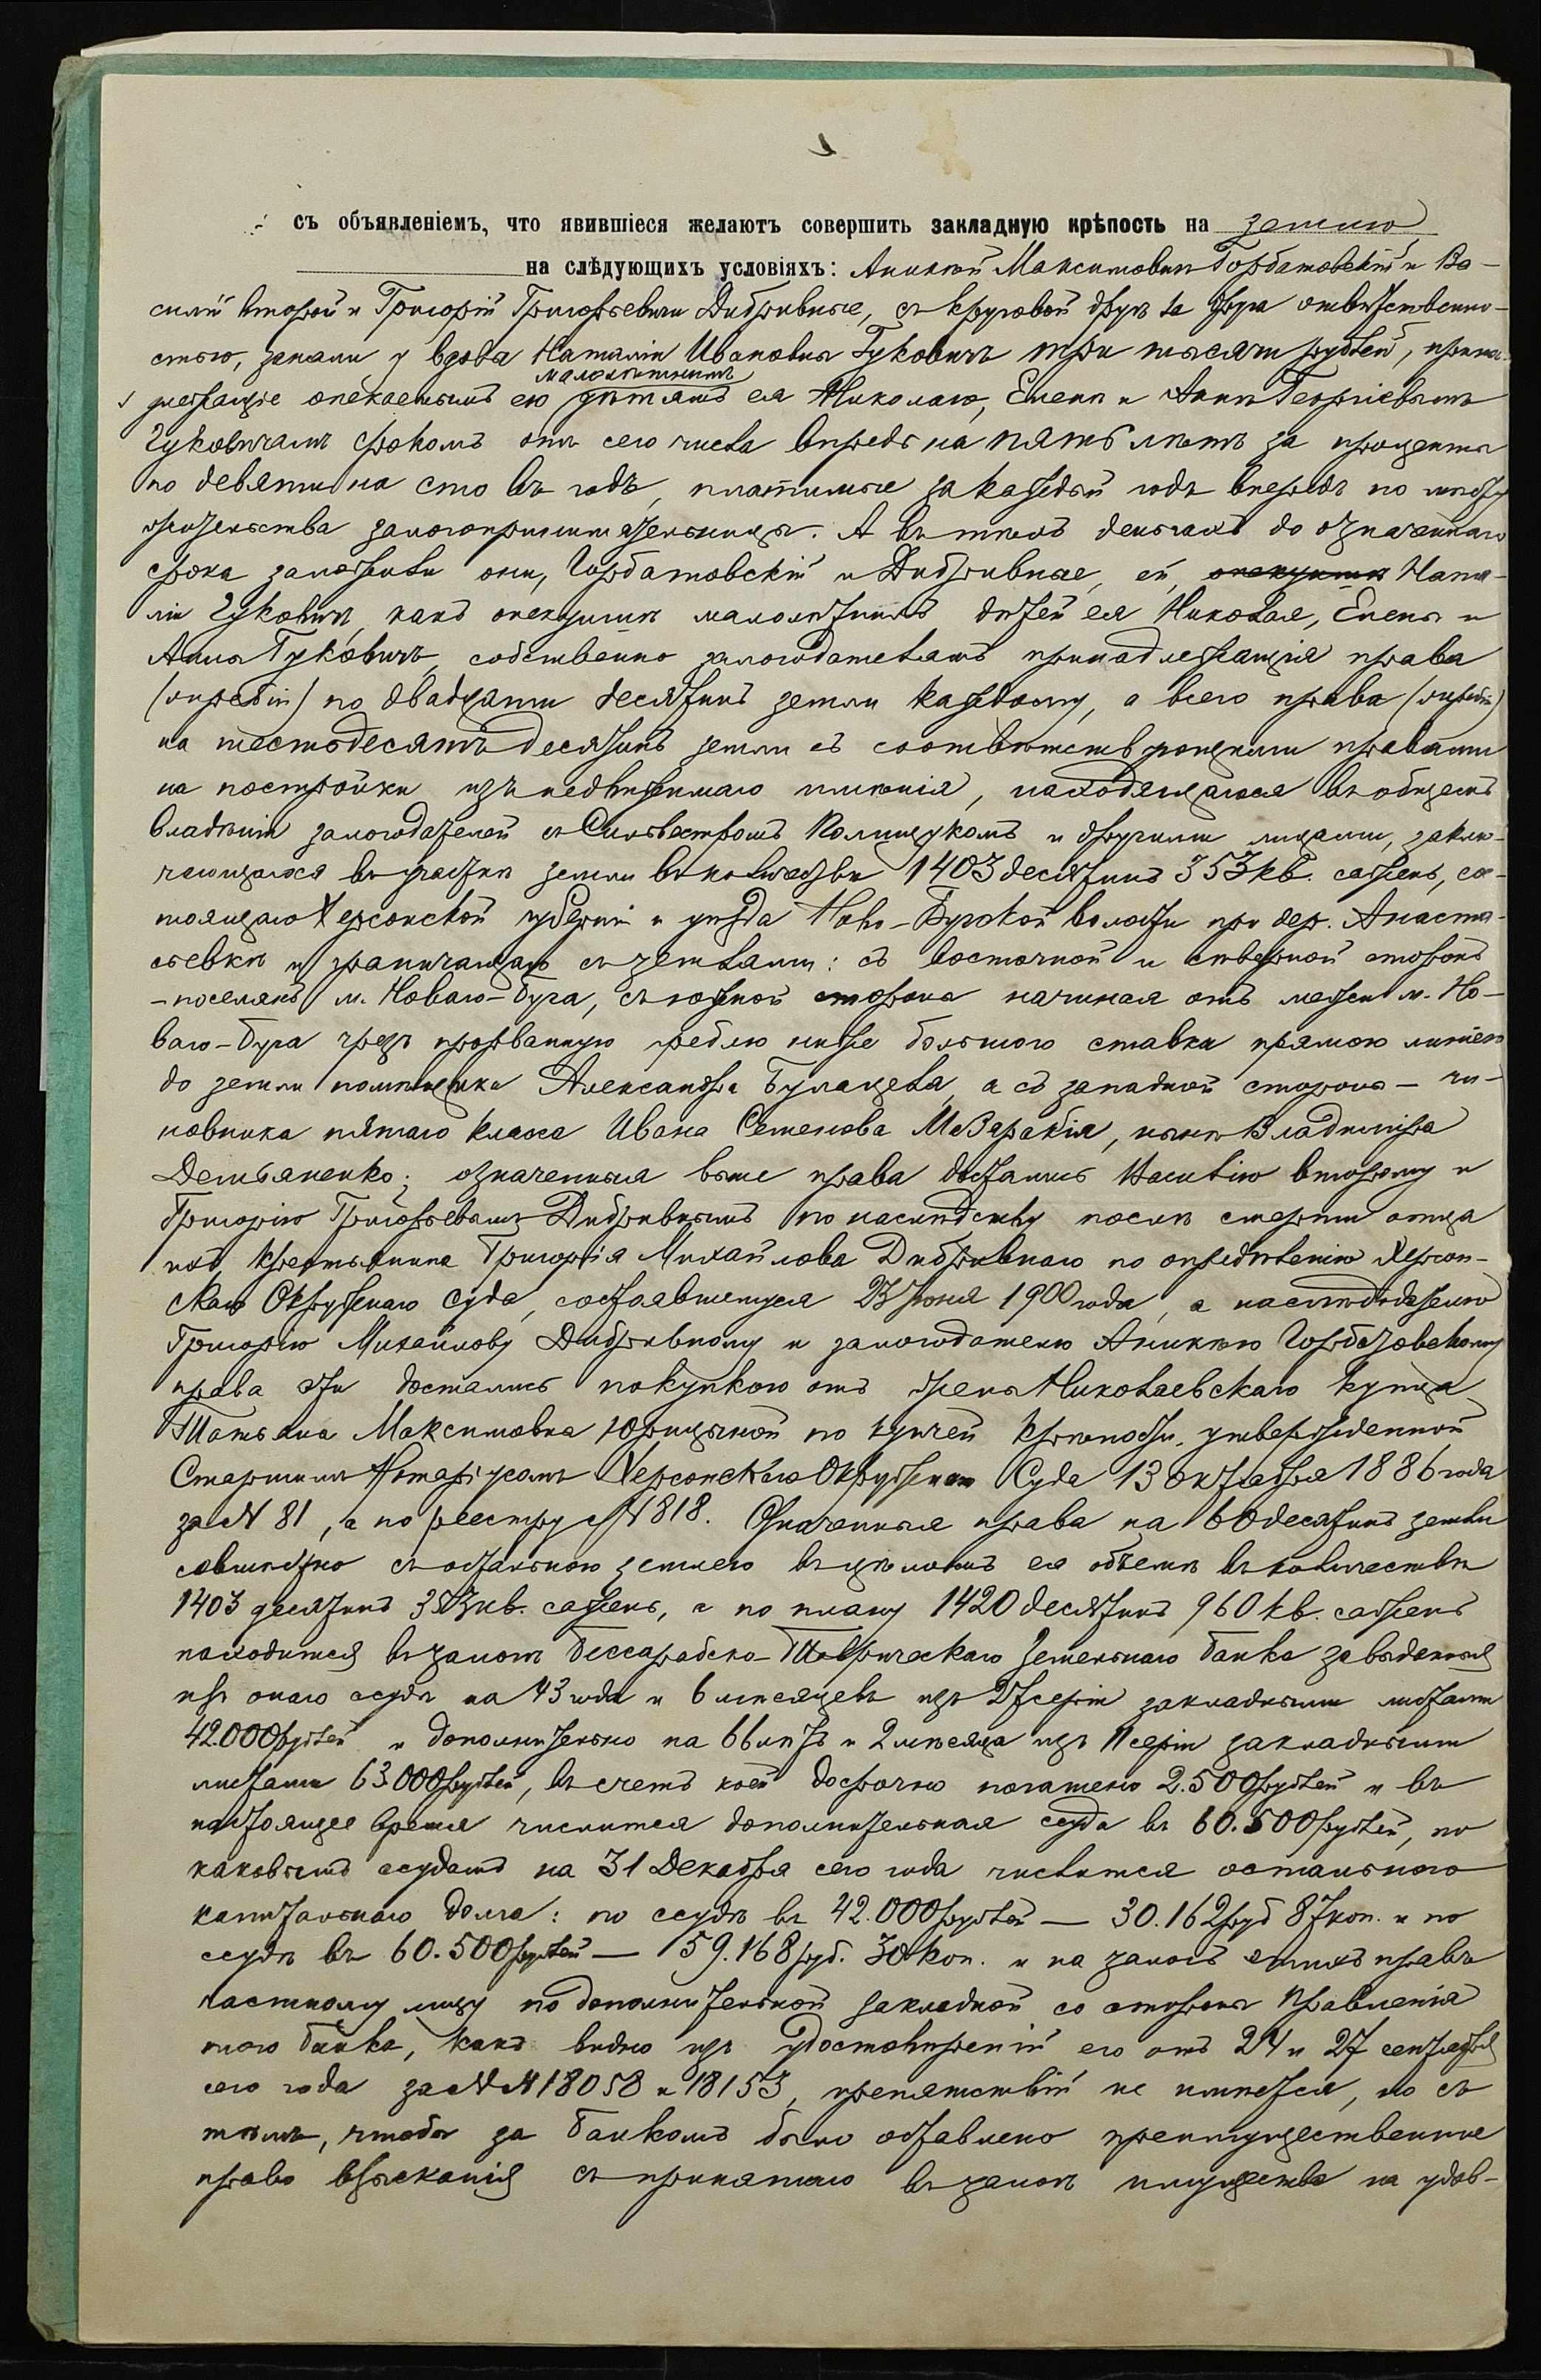 съ объявленіемъ, что явившіеся желаютъ совершить закладную крѣпость на землю
на слѣдующихъ условіяхъ: Аникѣй Максимовичъ Горбатовскій и Ва-
силій второй и Григорій Григорьевичи Дибривные, съ круговой другъ за друга отвѣтственно-
стью, заняли у вдовы Наталіи Ивановны Гуковичъ три тысячи рублей, принад-
малолѣтнимъ
лежащіе опекаемымъ ею дѣтямъ ея Николаю, Еленѣ и Аннѣ Георгіевымъ
Гуковичамъ срокомъ отъ сего числа впредь на пять лѣтъ за проценты
по девяти на сто въ годъ, платимые за каждый годъ впередъ по мѣсту
жительства залогопринимательницы. А въ тѣхъ деньгахъ до означеннаго
срока заложили они, Горбатовскій и Дибривные, ей, опекуншѣ Ната-
ліи Гуковичъ, какъ опекуншѣ малолѣтнихъ дѣтей ея Николая, Елены и
Анны Гуковичъ, собственно залогодателямъ принадлежащія права
(жребіи) по двадцати десятинъ земли каждому, а всего права (жребіи)
на шестьдесятъ десятинъ земли съ соотвѣтствующими правами
на постройки изъ недвижимаго имѣнія, находящагося въ общемъ
владѣніи залогодателей съ Сильвестромъ Полищукомъ и другими лицами, заклю-
чающагося въ участкѣ земли въ количествѣ 1403 десятинъ 353 кв. сажень, со-
стоящаго Херсонской губерніи и уѣзда Ново-Бугской волости при дер. Анаста-
сьевкѣ и граничащаго съ землями: съ восточной и сѣверной сторонъ
- поселянъ м. Новаго-Буга, съ южной стороны начиная отъ межи м. Но-
ваго-Буга чрезъ прорванную греблю ниже большого ставка прямою линіею
до земли помѣщика Александра Булацеля, а съ западной стороны - чи-
новника пятаго класса Ивана Семенова Мазаракія, нынѣ Владиміра
Демьяненко; означенныя выше права достались Василію второму и
Григорію Григорьевымъ Дибривнымъ по наслѣдству послѣ смерти отца
ихъ, крестьянина Григорія Михайлова Дибривнаго по опредѣленію Херсон-
скаго Окружнаго Суда, состоявшемуся 23 Іюня 1900 года, а наслѣдодателю
Григорію Михайлову Дибривному и залогодателю Аникѣю Горбатовскому
права эти достались покупкою отъ жены Николаевскаго купца
Татьяны Максимовны Юрицыной по купчей крѣпости, утвержденной
Старшимъ Нотаріусомъ Херсонскаго Окружнаго Суда 13 Октября 1886 года
за № 81, а по реестру № 818. Означенныя права на 60 десятинъ земли
совмѣстно съ остальною землею въ цѣломъ ея объемѣ въ количествѣ
1403 десятинъ 353 кв. сажень, а по плану 1420 десятинъ 960 кв. сажень
находится въ залогѣ Бессарабско-Таврическаго Земельнаго банка за выданныя
изъ онаго ссуды на 43 года и 6 мѣсяцевъ изъ 27 серіи закладными листами
42.000 рублей и дополнительно на 66 лѣтъ и 2 мѣсяца изъ 11 серіи закладными
листами 63.000 рублей, въ счетъ коей досрочно погашено 2.500 рублей и въ
настоящее время числится дополнительная ссуда въ 60.500 рублей, по
каковымъ ссудамъ на 31 Декабря сего года числится остального
капитальнаго долга: по ссудѣ въ 42.000 рублей — 30.162 руб 87 коп. и по
ссудѣ въ 60.500 рублей — 59.168 руб. 30 коп. и на залогъ этихъ правъ
частному лицу по дополнительной закладной со стороны Правленія
того банка, какъ видно изъ удостовѣреній его отъ 24 и 27 сентября
сего года за №№ 18058 и 18153, препятствій не имѣется, но съ
тѣмъ, чтобы за банкомъ было оставлено преимущественное
право взысканія съ принятаго въ залогъ имущества на удов-